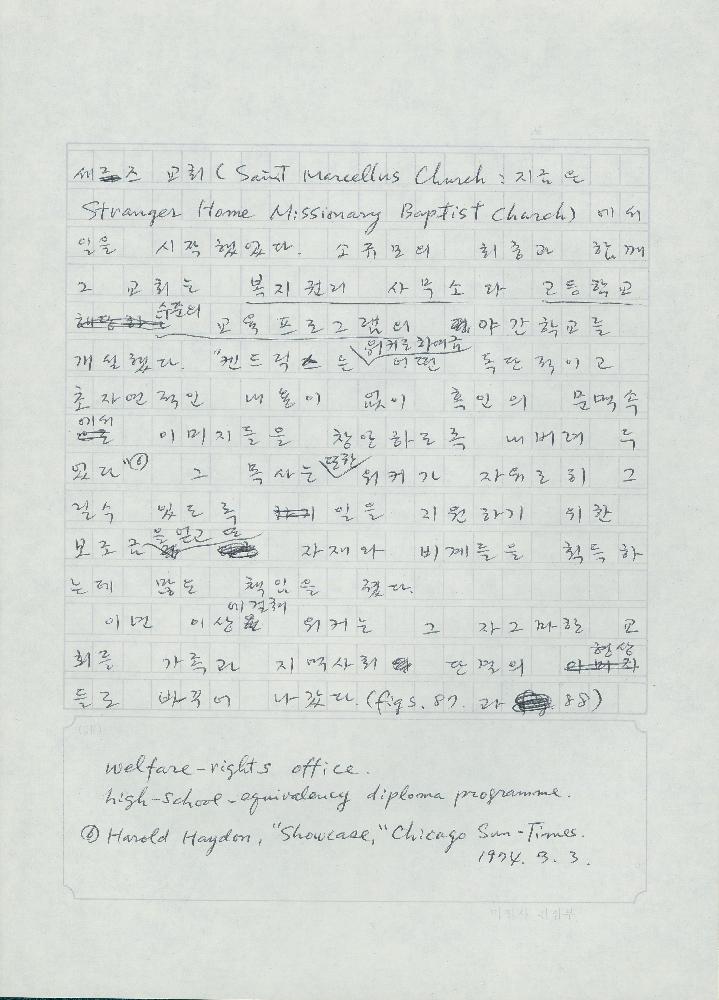 세르즈 교회 ( Saint Marcellus Church : 지금은
Stranger Home Missionary Baptist Church) 에서
일을 시작했었다. 소규모의 회중과 함께
그 교회는 복지권리 사무소와 고등학교
수준의
교육프로그램의 야간학교를
워커로 하여금
개설했다. "켄드릭스는 어떤 독단적이고
초자연적인 내용이 없이 흑인의 문맥속
에서
이미지들을 창안하도록 내버려 두
었다"⑥ 그 목사는 또한 워커가 자유로이 그
릴수 있도록 일을 지원하기 위한
을 얻고 또
보조금 자재와 비계들을 획득하
는데 많은 책임을 졌다.
에 걸쳐
이년 이상 워커는 그 자그마한 교
현상
회를 가족과 지역사회 단결의
들로 바꾸어 나갔다. (figs. 87. 과 88)
welfare-rights office.
high-school-equivalency diploma programme.
⑥ Harold Haydon, "Showcase," Chicago Sun-Times.
1974. 3. 3.